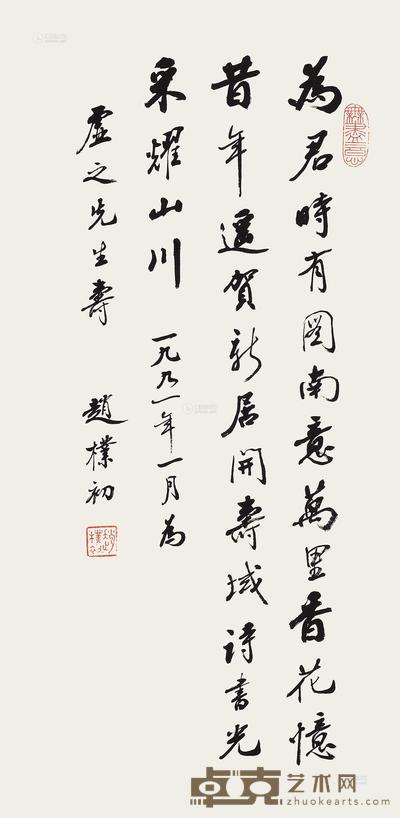 為君時有圖南意萬里香花憶
昔年遙賀新居開壽域詩書光
采耀山川 一九九一年一月為
虛之先生壽 趙樸初
無盡意
卓克艺术网
www.zhuokearts.com